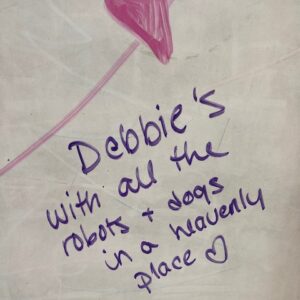 Debbie's
with all the
robots + dogs
in a heavenly
place ♡